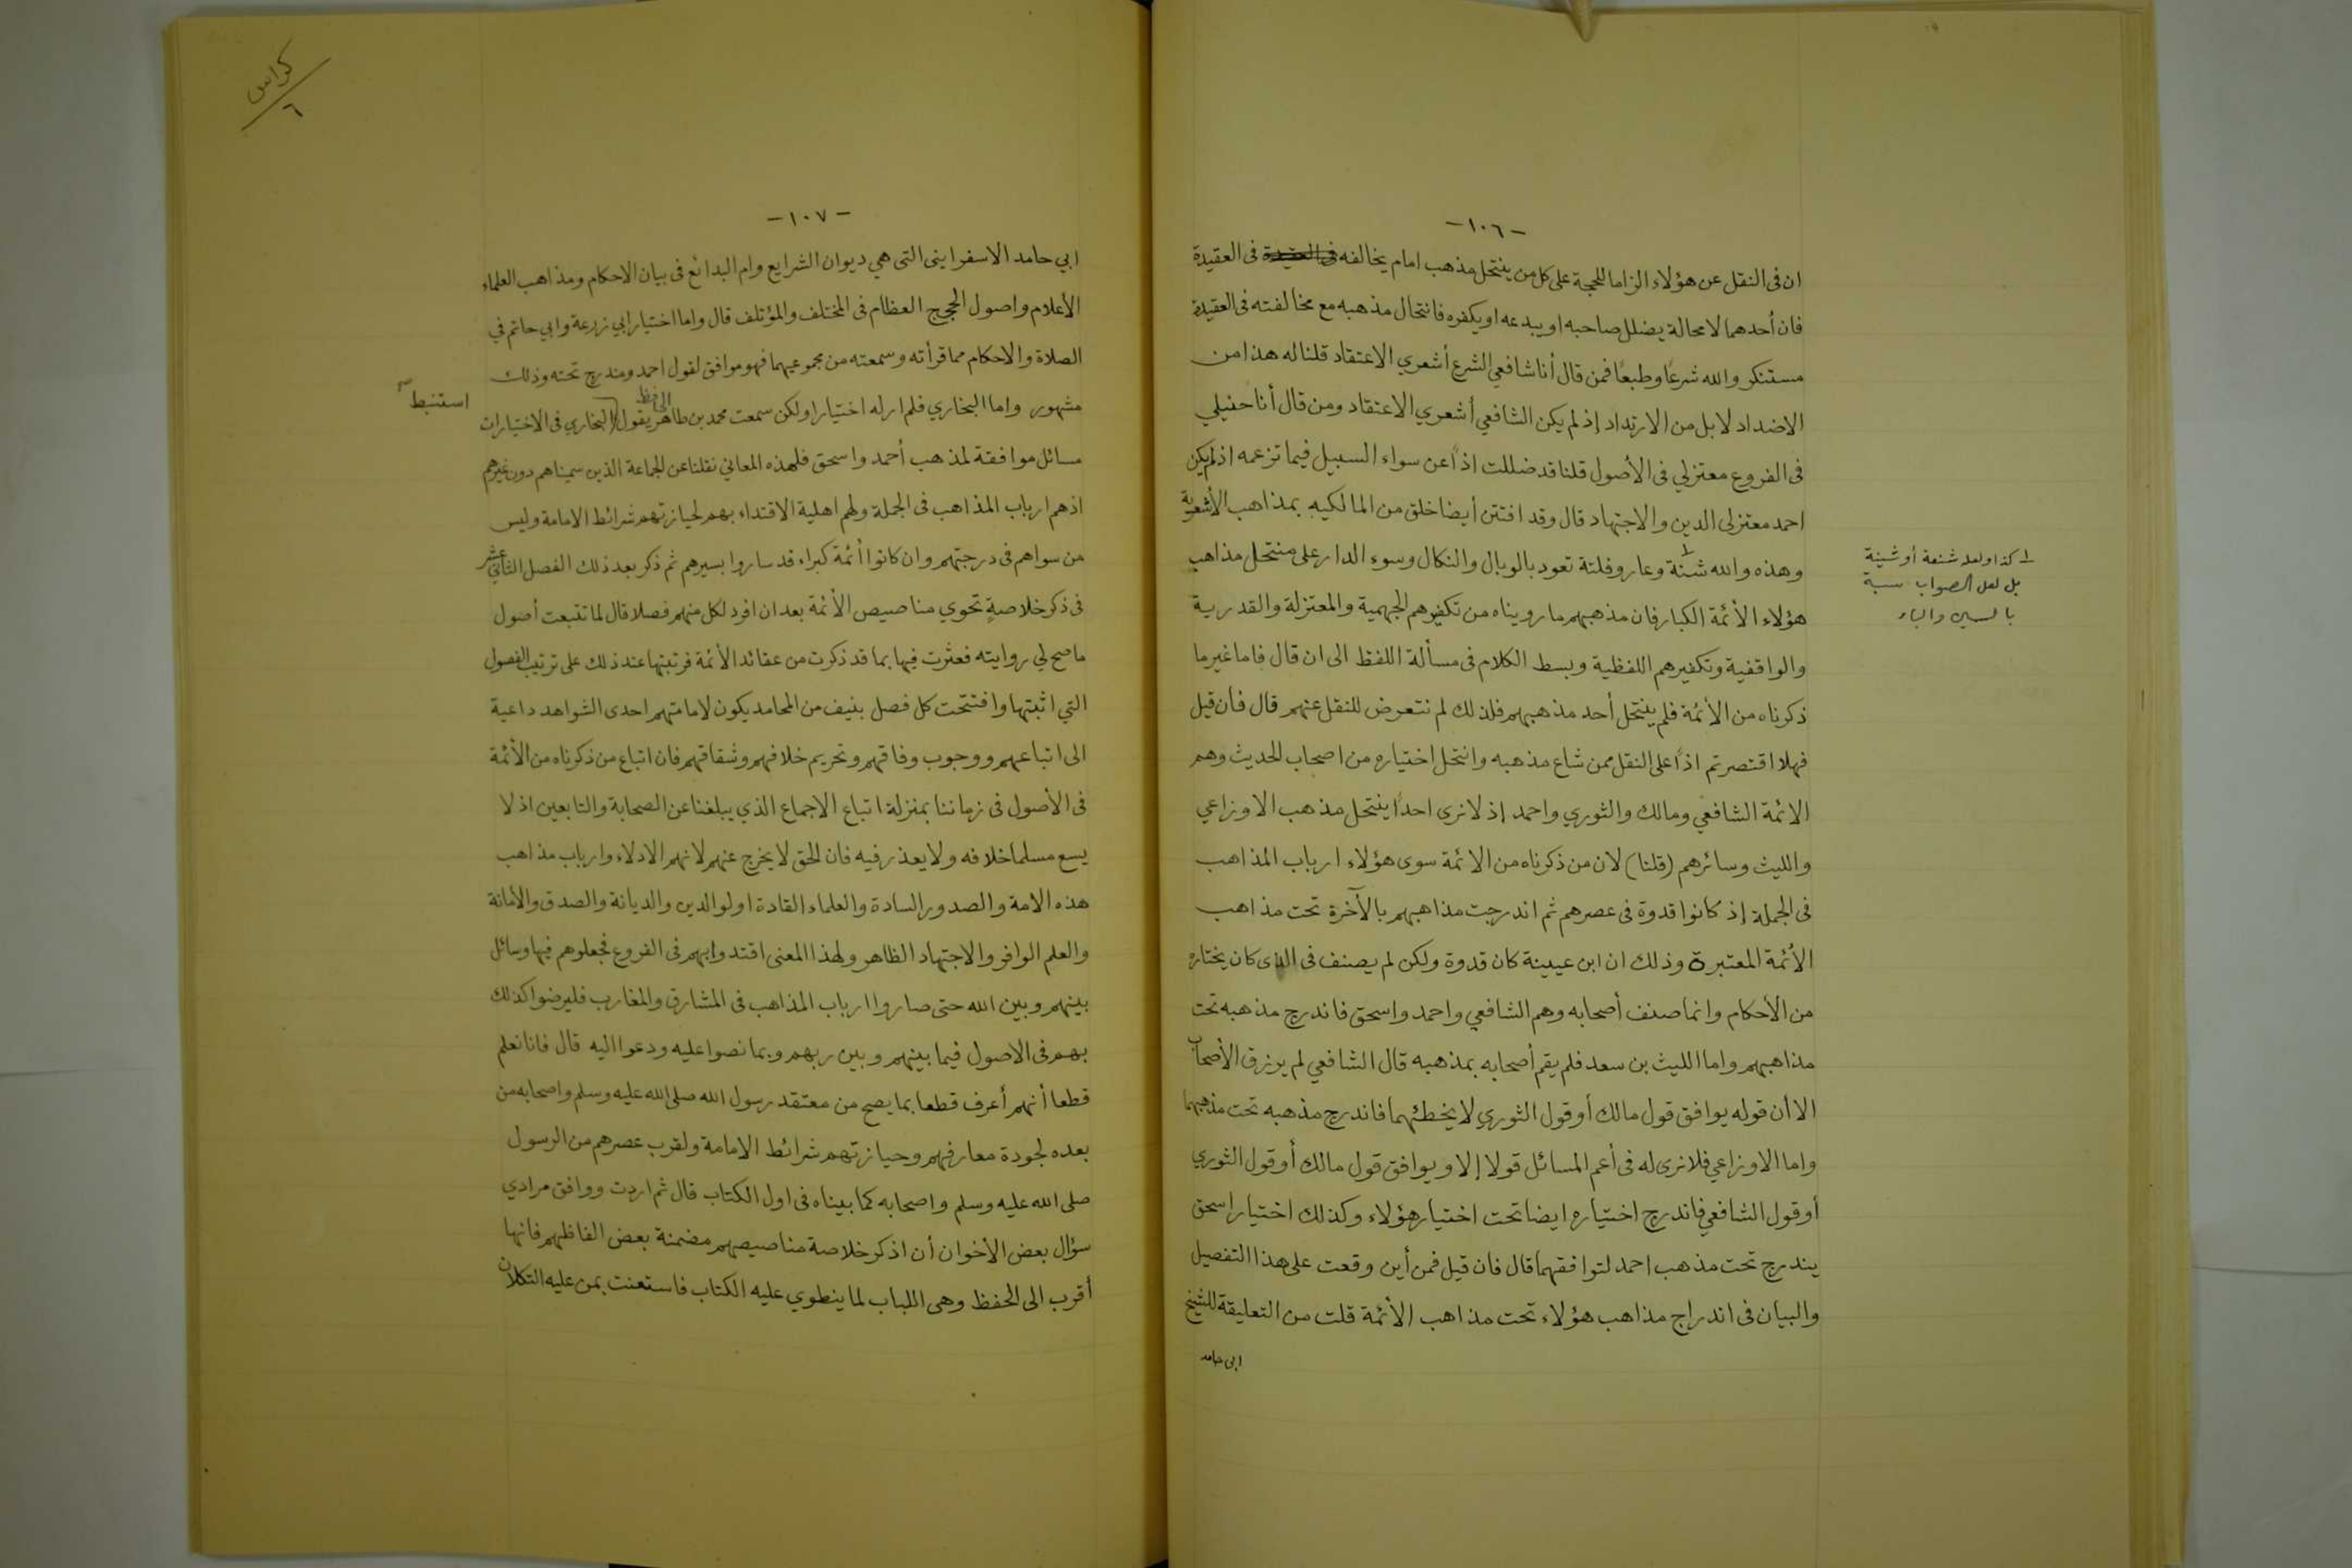 -١٠٦-
ان فى النقل عن هؤلاء الزاما للحجة على كل من ينتحل مذهب امام يخالفه فى العقيدة فى العقيدة
فان أحدهما لا محالة يضلل صاحبه او يبدعه او يكفره فانتحال مذهبه مع مخالفته فى العقيدة
مستنكر والله شرعًا وطبعًا فمن قال أنا شافعي الشرع أشعري الاعتقاد قلنا له هذا من
الاضداد لا بل من الارتداد إذ لم يكن الشافعي أشعري الاعتقاد ومن قال أنا حنبلي
فى الفروع معتزلي فى الأصول قلنا قد ضللت اذًا عن سواء السبيل فيما تزعمه اذ لم يكن
احمد معتزلى الدين والاجتهاد قال وقد افتتن أيضا خلق من المالكيه بمذاهب الأشعرية
وهذه والله شنة وعار وفلتة تعود بالوبال والنكال وسوء الدار على منتحل مذاهب
١ كذا ولعله شنعة أو شينة
بل لعل الصواب سبة
بالسين والباء
هؤلاء الأئمة الكبار فان مذهبهم ما رويناه من تكفيرهم الجهمية والمعتزلة والقدرية
والواقفية وتكفيرهم اللفظية وبسط الكلام فى مسألة اللفظ الى ان قال فاما غير ما
ذكرناه من الأئمة فلم ينتحل أحد مذهبهم فلذلك لم نتعرض للنقل عنهم قال فان قيل
فهلا اقتصرتم اذًا على النقل ممن شاع مذهبه وانتحل اختياره من اصحاب الحديث وهم
الائمة الشافعي ومالك والثوري واحمد إذ لا نرى احدًا ينتحل مذهب الاوزاعي
والليث وسائرهم (قلنا) لان من ذكرناه من الائمة سوى هؤلاء ارباب المذاهب
فى الجملة إذ كانوا قدوة فى عصرهم ثم اندرجت مذاهبهم بالآخرة تحت مذاهب
الأئمة المعتبرة وذلك ان ابن عيينة كان قدوة ولكن لم يصنف فى الذى كان يختاره
من الأحكام وانما صنف أصحابه وهم الشافعي واحمد واسحق فاندرج مذهبه تحت
مذاهبهم واما الليث بن سعد فلم يقم أصحابه بمذهبه قال الشافعي لم يرزق الأصحاب
الا أن قوله يوافق قول مالك أو قول الثوري لا يخطئهما فاندرج مذهبه تحت مذهبهما
واما الاوزاعي فلا نرى له فى أعم المسائل قولا إلا ويوافق قول مالك أو قول الثوري
أو قول الشافعي فاندرج اختياره ايضا تحت اختيار هؤلاء وكذلك اختيار اسحق
يندرج تحت مذهب احمد لتوافقهما قال فان قيل فمن أين وقعت على هذا التفصيل
والبيان فى اندراج مذاهب هؤلاء تحت مذاهب الأئمة قلت من التعليقة للشيخ
ابى حامد
كراس
٦
-١٠٧-
ابي حامد الاسفراينى التى هي ديوان الشرايع وام البدائع فى بيان الاحكام ومذاهب العلماء
الأعلام واصول الحجج العظام فى المختلف والمؤتلف قال واما اختيار ابي زرعة وابي حاتم في
الصلاة والاحكام مما قرأته وسمعته من مجموعيهما فهو موافق لقول احمد ومندرج تحته وذلك
مشهور واما البخاري فلم ار له اختيارا ولكن سمعت محمد بن طاهر الحافظ يقول البخاري فى الاختيارات
استنبط صح
مسائل موافقة لمذهب أحمد واسحق فلهذه المعاني نقلنا عن الجماعة الذين سميناهم دون غيرهم
اذ هم ارباب المذاهب فى الجملة ولهم اهلية الاقتداء بهم لحيازتهم شرائط الامامة وليس
من سواهم فى درجتهم وان كانوا أئمة كبراء قد ساروا بسيرهم ثم ذكر بعد ذلك الفصل الثاني عشر
فى ذكر خلاصةٍ تحوي مناصيص الأئمة بعد ان افرد لكل منهم فصلا قال لما تتبعت أصول
ما صح لي روايته فعثرت فيها بما قد ذكرت من عقائد الأئمة فرتبتها عند ذلك على ترتيب الفصول
التي اثبتها وافتتحت كل فصل بنيف من المحامد يكون لامامتهم احدى الشواهد داعية
الى اتباعهم ووجوب وفاقهم وتحريم خلافهم وشقاقهم فان اتباع من ذكرناه من الأئمة
فى الأصول فى زماننا بمنزلة اتباع الاجماع الذي يبلغنا عن الصحابة والتابعين اذ لا
يسع مسلما خلافه ولا يعذر فيه فان الحق لا يخرج عنهم لانهم الادلاء وارباب مذاهب
هذه الامة والصدور السادة والعلماء القادة اولوا الدين والديانة والصدق والأمانة
والعلم الوافر والاجتهاد الظاهر ولهذا المعنى اقتدوا بهم فى الفروع فجعلوهم فيها وسائل
بينهم وبين الله حتى صاروا ارباب المذاهب فى المشارق والمغارب فليرضوا كذلك
بهم فى الاصول فيما بينهم وبين ربهم وبما نصوا عليه ودعوا اليه قال فانا نعلم
قطعا أنهم أعرف قطعا بما يصح من معتقد رسول الله صلى الله عليه وسلم واصحابه من
بعده لجودة معارفهم وحيازتهم شرائط الامامة ولقرب عصرهم من الرسول
صلى الله عليه وسلم واصحابه كما بيناه فى اول الكتاب قال ثم اردت ووافق مرادي
سؤال بعض الأخوان أن اذكر خلاصة مناصيصهم مضمنة بعض الفاظهم فانها
أقرب الى الحفظ وهى اللباب لما ينطوي عليه الكتاب فاستعنت بمن عليه التكلان